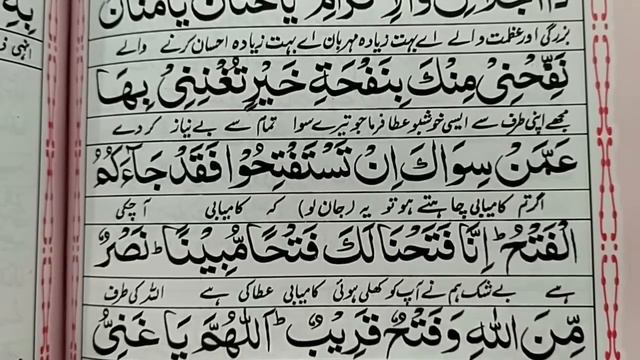 ذَا الْجَلَالِ وَالْاِكْرَامِ يَا حَنَّانُ يَا مَنَّانُ
بزرگی اور عظمت والے اے بہت زیادہ مہربان اے بہت زیادہ احسان کرنے والے
نَفِّحْنِيْ مِنْكَ بِنَفْحَةِ خَيْرٍ تُغْنِنِيْ بِهَا
مجھے اپنی طرف سے ایسی خوشبو عطا فرما جو تیرے سوا تمام سے بے نیاز کر دے
عَمَّنْ سِوَاكَ اِنْ تَسْتَفْتِحُوْا فَقَدْ جَآءَكُمُ
اگر تم کامیابی چاہتے ہو تو یہ (جان لو) کہ کامیابی آ چکی
الْفَتْحُ ؕ اِنَّا فَتَحْنَا لَكَ فَتْحًا مُّبِيْنًا ؕ نَصْرٌ
ہے بے شک ہم نے آپ کو کھلی ہوئی کامیابی عطا کی ہے اللہ کی طرف
مِّنَ اللّٰهِ وَفَتْحٌ قَرِيْبٌ ؕ اَللّٰهُمَّ يَا غَنِيُّ